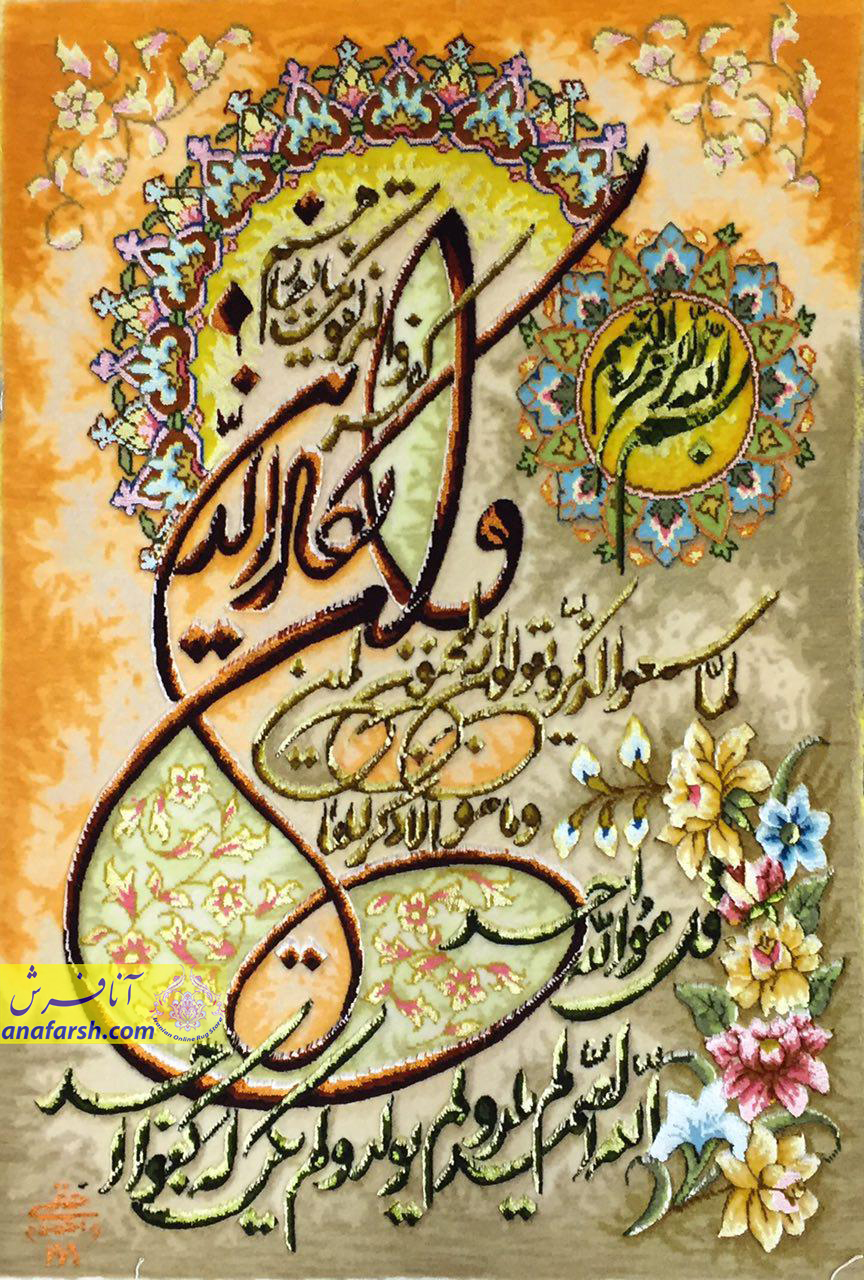 بسم الله الرحمن الرحیم
و ان یکاد الذین
کفروا لیزلقونک بابصارهم
لما سمعوا الذکر و یقولون انه لمجنون
و ما هو الا ذکر للعالمین
قل هو الله احد
الله الصمد لم یلد و لم یولد و لم یکن له کفوا احد
آنا فرش
anafarsh.com
Iranian Online Rug Store